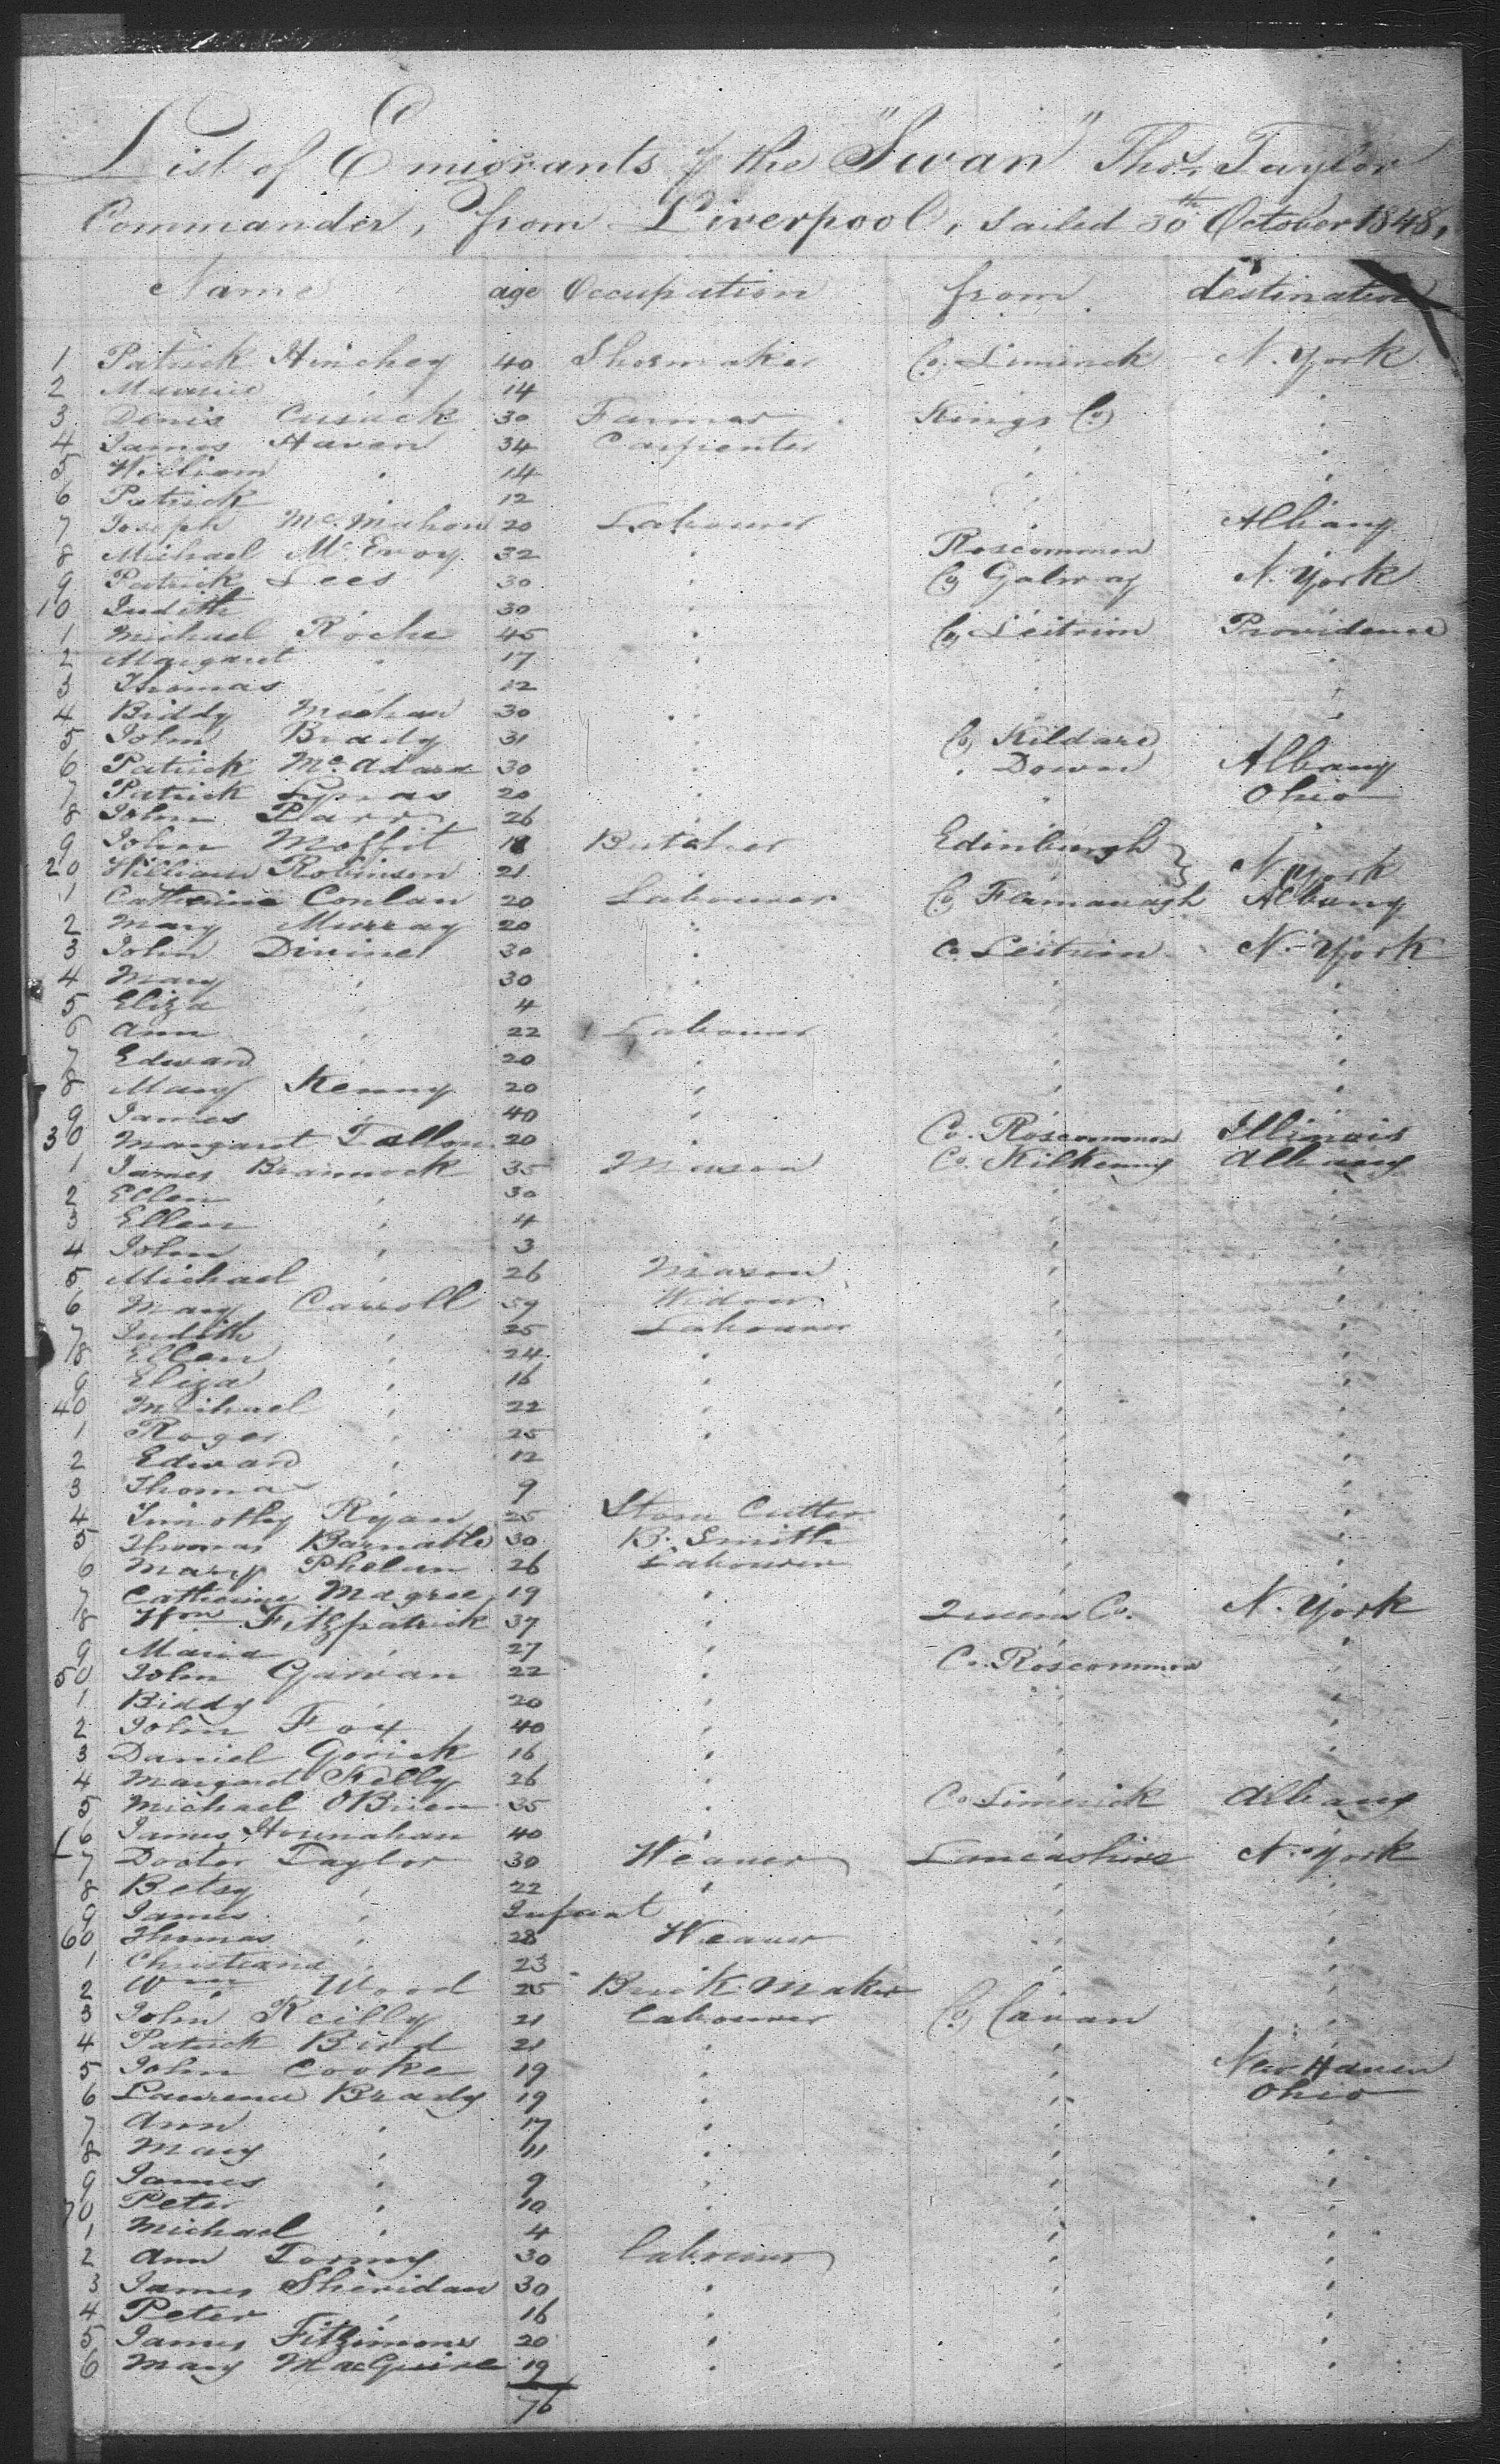 List of Emigrants of the "Swan" Thos. Taylor
Commander, from Liverpool, sailed 30th October 1848,
Name age Occupation from destination
1 Patrick Hinchey 40 Shoemaker Co. Limerick N. York
2 Maurice " 14
3 Denis Cusack 30 Farmer Kings Co "
4 James Haven 34 Carpenter " "
5 William " 14 " "
6 Patrick " 12 " "
7 Joseph McMahon 20 Labourer " Albany
8 Michael McEvoy 32 " Roscommon
9 Patrick Lees 30 " Co Galway N. York
10 Judith " 30 " " "
1 Michael Roche 45 " Co Leitrim Providence
2 Margaret " 17 " " "
3 Thomas " 12 " " "
4 Biddy Meehan 30 " " "
5 John Brady 31 " Co Kildare "
6 Patrick McAdard 30 " " Down Albany
7 Patrick 20 " " Ohio
8 John Parr 26 " " "
9 John Moffit 18 Butcher Edinburgh }
20 William Robinson 21 " } N. York
1 Catherine Conlan 20 Labourer Co Fermanagh Albany
2 Mary Murray 20 "
3 John Divine 30 " Co Leitrim N. York
4 Mary " 30 " " "
5 Eliza " 4 " "
6 Ann " 22 Labourer " "
7 Edward " 20 " " "
8 Mary Kenny 20 " " "
9 James " 40 " " "
30 Margaret Fallon 20 " Co. Roscommon Illinois
1 James Brannock 35 Mason Co. Kilkenny Albany
2 Ellen " 30 " "
3 Ellen " 4 " "
4 John " 3 " "
5 Michael " 26 Mason " "
6 Mary Carroll 59 Widow " "
7 Judith " 25 Labourer " "
8 Ellen " 24 " " "
9 Eliza " 16 " " "
40 Michael " 22 " " "
1 Roger " 25 " " "
2 Edward " 12 " "
3 Thomas " 9 " "
4 Timothy Ryan 25 Stone Cutter " "
5 Thomas Barnable 30 B. Smith " "
6 Mary Phelan 26 Labourer " "
7 Catherine Magree 19 " "
8 Wm Fitzpatrick 37 " Queens Co. N. York
9 Maria " 27 " " "
50 John Gavan 22 " Co. Roscommon "
1 Biddy " 20 " " "
2 John Fox 40 " " "
3 Daniel Gorick 16 " " "
4 Margaret Kelly 26 " " "
5 Michael OBrien 35 " Co Limerick Albany
6 James Hounahan 40 " " "
7 Doctor Taylor 30 Weaver Lancashire N. York
8 Betsy " 22 " " "
9 James " Infant " "
60 Thomas " 28 Weaver " "
1 Christiana " 23 " "
2 Wm Wood 25 Brick Maker " "
3 John Reilly 21 Labourer Co Cavan "
4 Patrick Bird 21 " " "
5 John Cooke 19 " " New Haven
6 Laurence Brady 19 " " Ohio
7 Ann " 17 " " "
8 Mary " 11 " " "
9 James " 9 " " "
70 Peter " 10 " " "
1 Michael " 4 " "
2 Ann Tormy 30 Labourer " "
3 James Sheridan 30 " " "
4 Peter " 16 " " "
5 James Fitzimons 20 " " "
6 Mary MacGuire 19 " " "
76